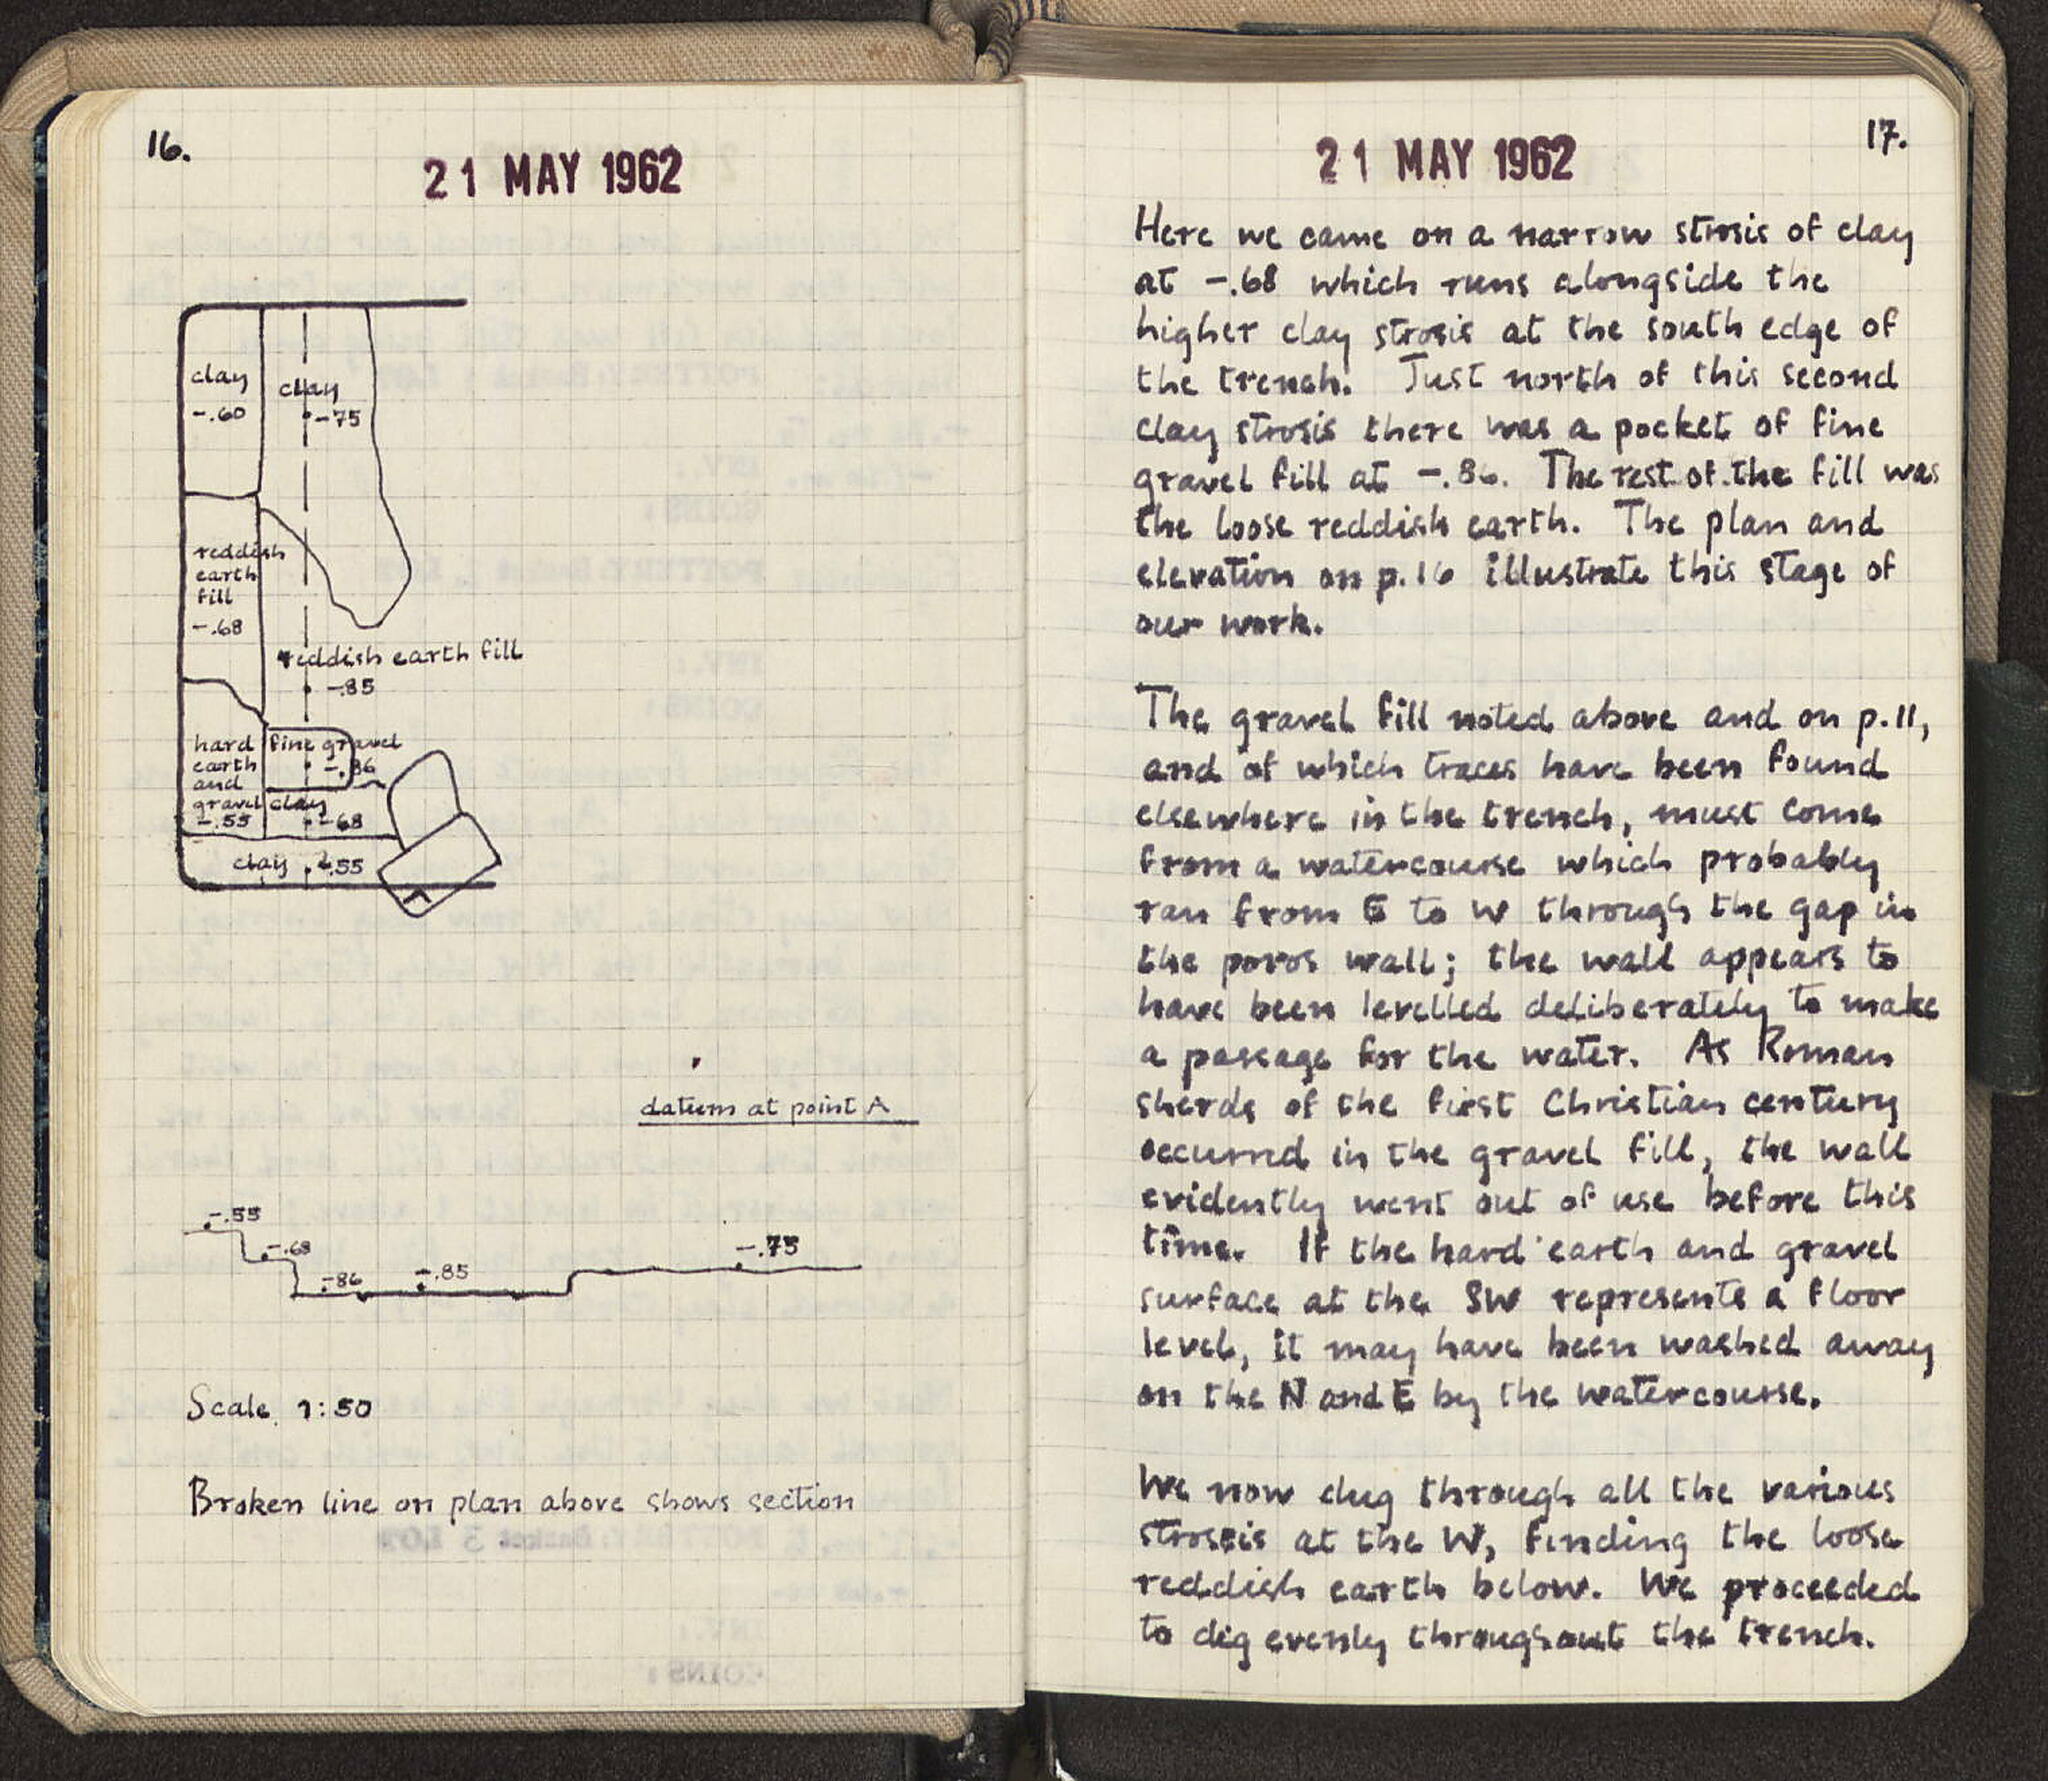 16.
21 MAY 1962
clay
-.60
clay
-.75
reddish
earth
fill
-.68
reddish earth fill
-.85
hard
earth
and
gravel
-.55
fine gravel
-.86
clay
-.68
clay -.55
A
datum at point A
-.55
-.68
-.86
-.85
-.75
Scale 1:50
Broken line on plan above shows section
17.
21 MAY 1962
Here we came on a narrow strosis of clay
at -.68 which runs alongside the
higher clay strosis at the south edge of
the trench. Just north of this second
clay strosis there was a pocket of fine
gravel fill at -.86. The rest of the fill was
the loose reddish earth. The plan and
elevation on p.16 illustrate this stage of
our work.
The gravel fill noted above and on p.11,
and of which traces have been found
elsewhere in the trench, must come
from a watercourse which probably
ran from E to W through the gap in
the poros wall; the wall appears to
have been levelled deliberately to make
a passage for the water. As Roman
sherds of the first Christian century
occurred in the gravel fill, the wall
evidently went out of use before this
time. If the hard earth and gravel
surface at the SW represents a floor
level, it may have been washed away
on the N and E by the watercourse.
We now dug through all the various
stroseis at the W, finding the loose
reddish earth below. We proceeded
to dig evenly throughout the trench.